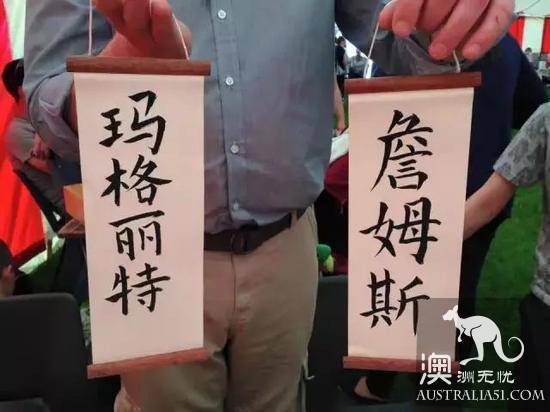 玛格丽特
詹姆斯
澳洲无忧
AUSTRALIA51.COM